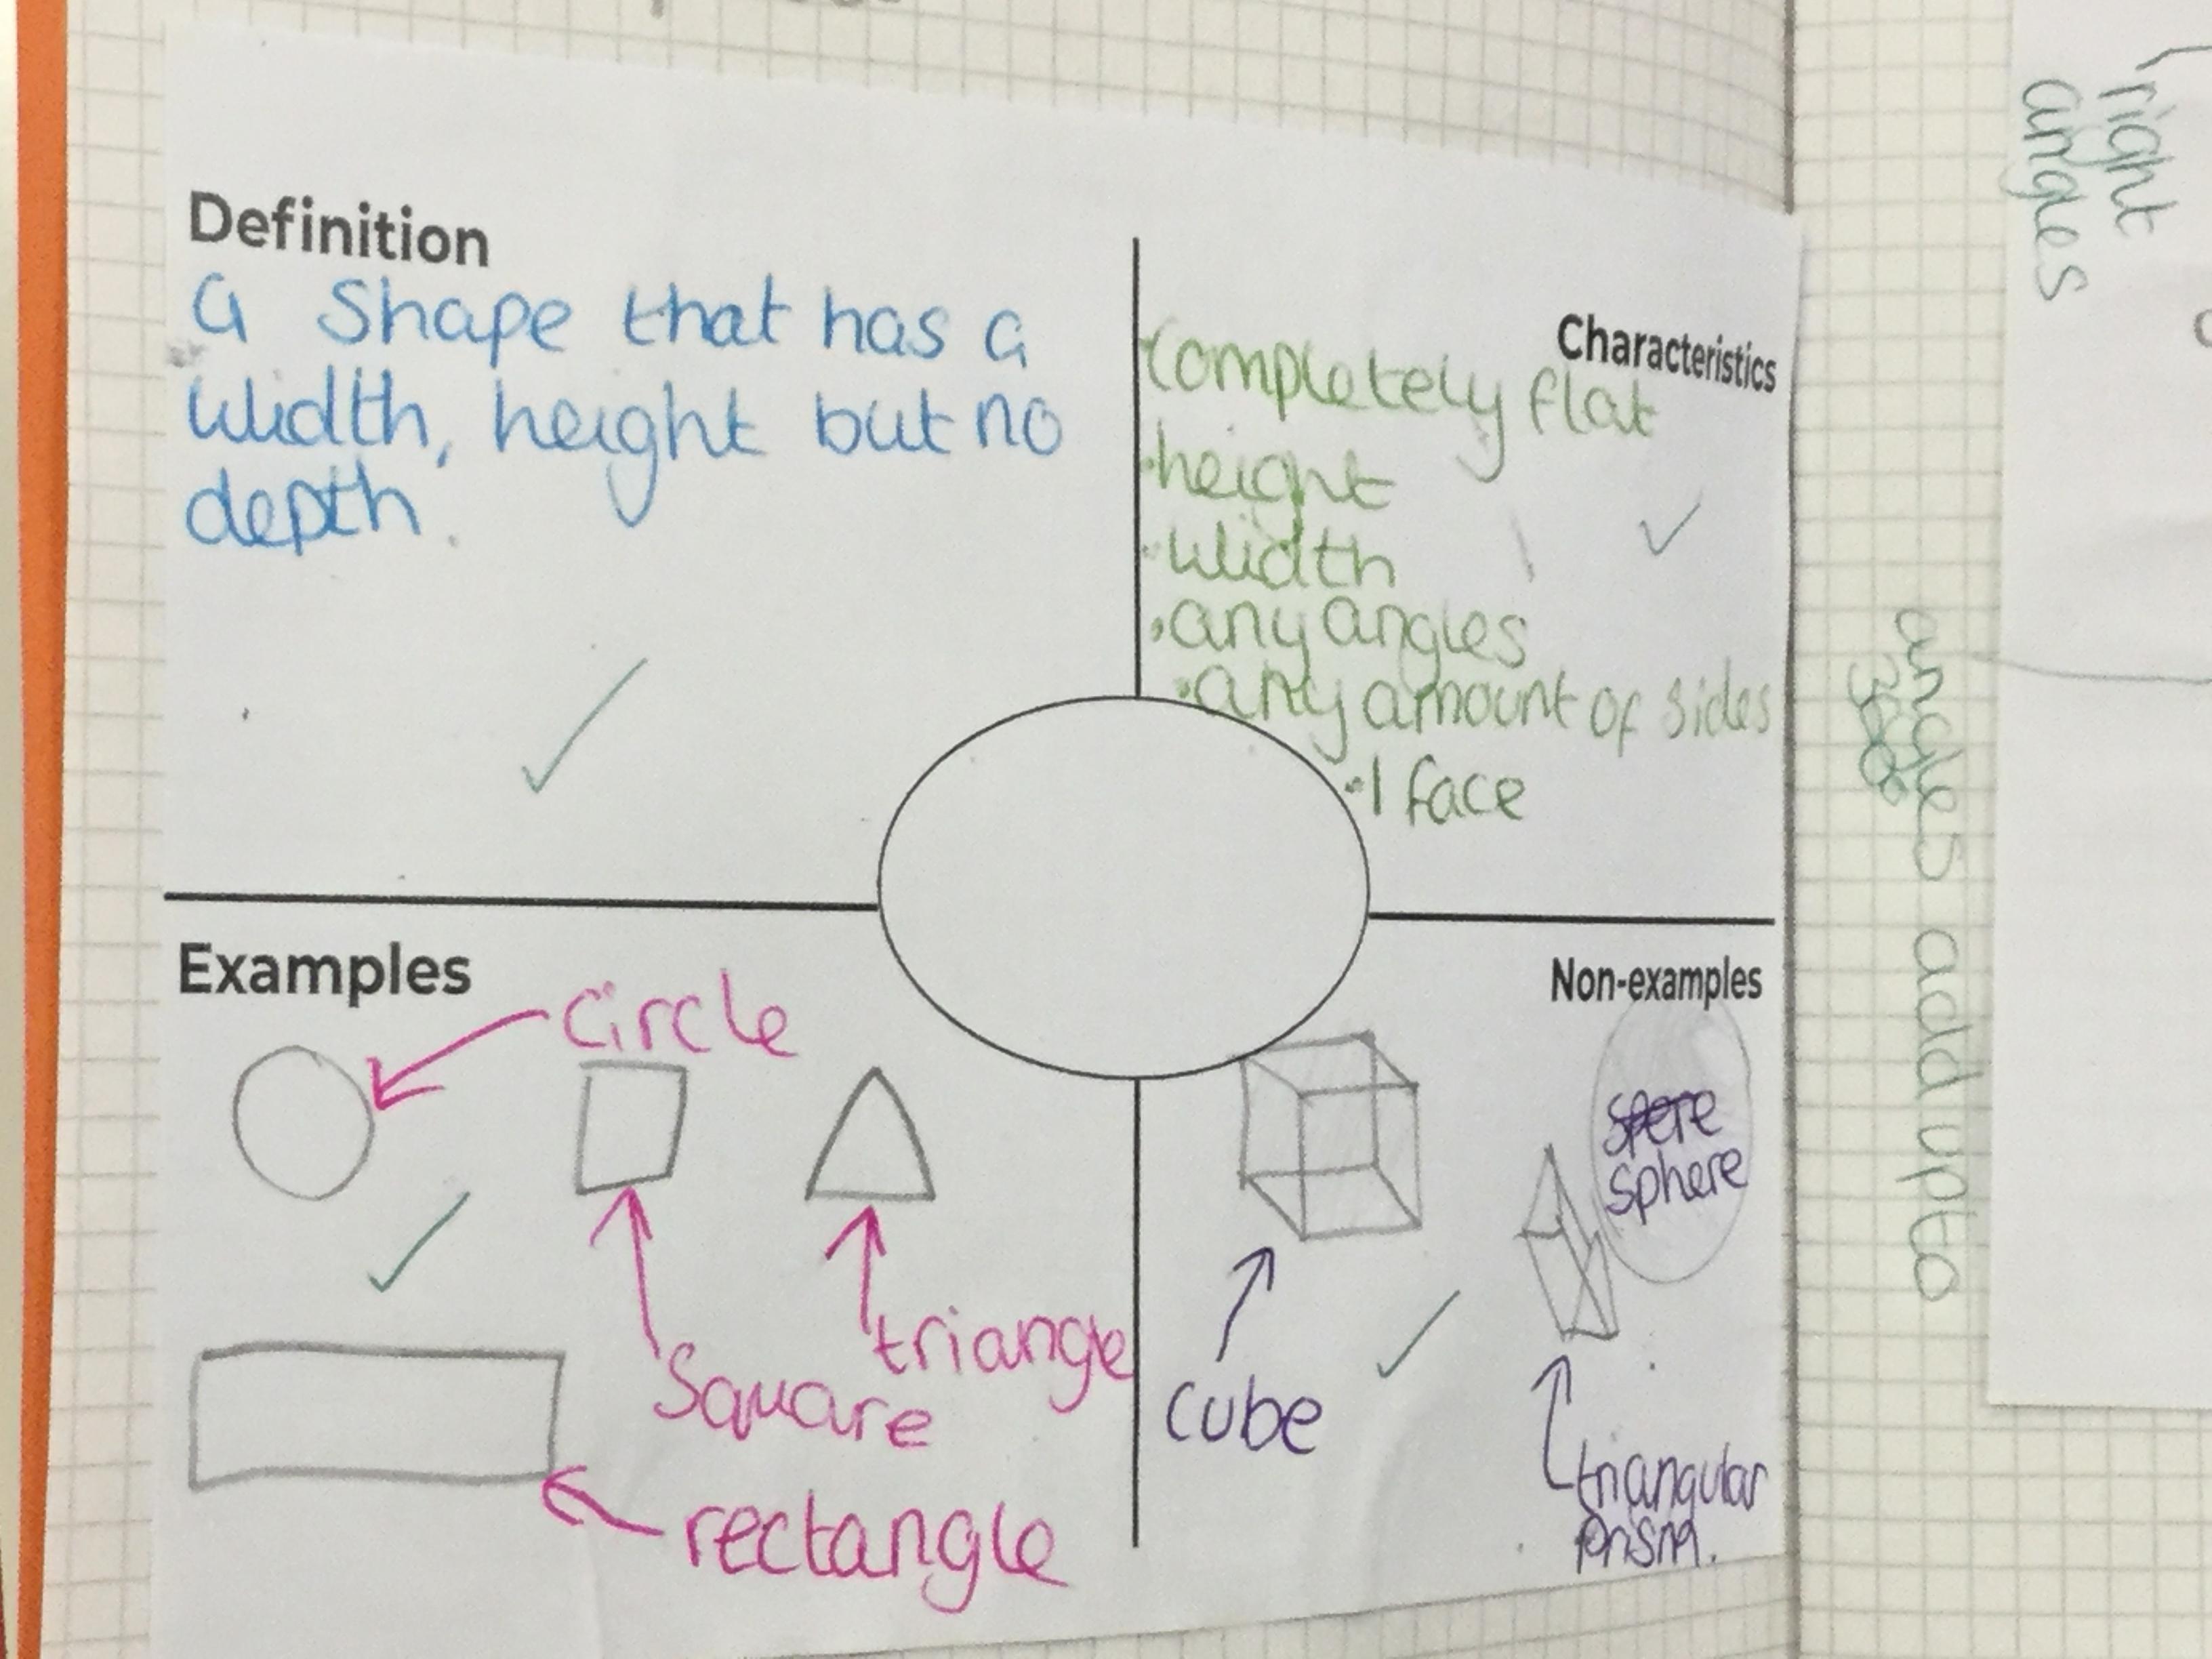 Definition
a shape that has a
width, height but no
depth.
Characteristics
·Completely flat
·height
·width
·any angles
·any amount of sides
·1 face
Examples
circle
square
triangle
rectangle
Non-examples
spere
sphere
cube
triangular
prism.
right
angles
angles add up to